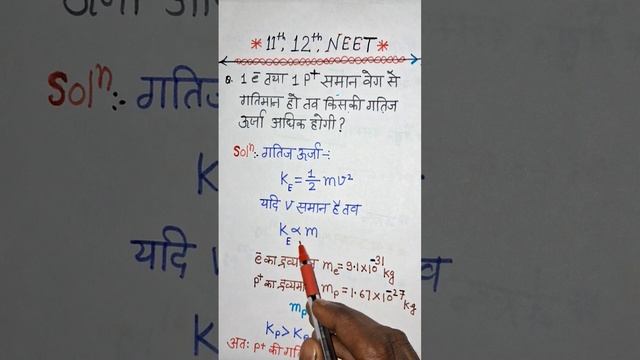 *11th, 12th, NEET*
Q. 1 e̅ तथा 1 P⁺ समान वेग से
गतिमान हो तब किसकी गतिज
ऊर्जा अधिक होगी?
Solⁿ:- गतिज ऊर्जा:-
K_E = 1/2 mv²
यदि V समान है तब
K_E ∝ m
e̅ का m_e = 9.1×10⁻³¹ kg
P⁺ का m_p = 1.67×10⁻²⁷ kg
m_p
K_P >
अतः P⁺ की